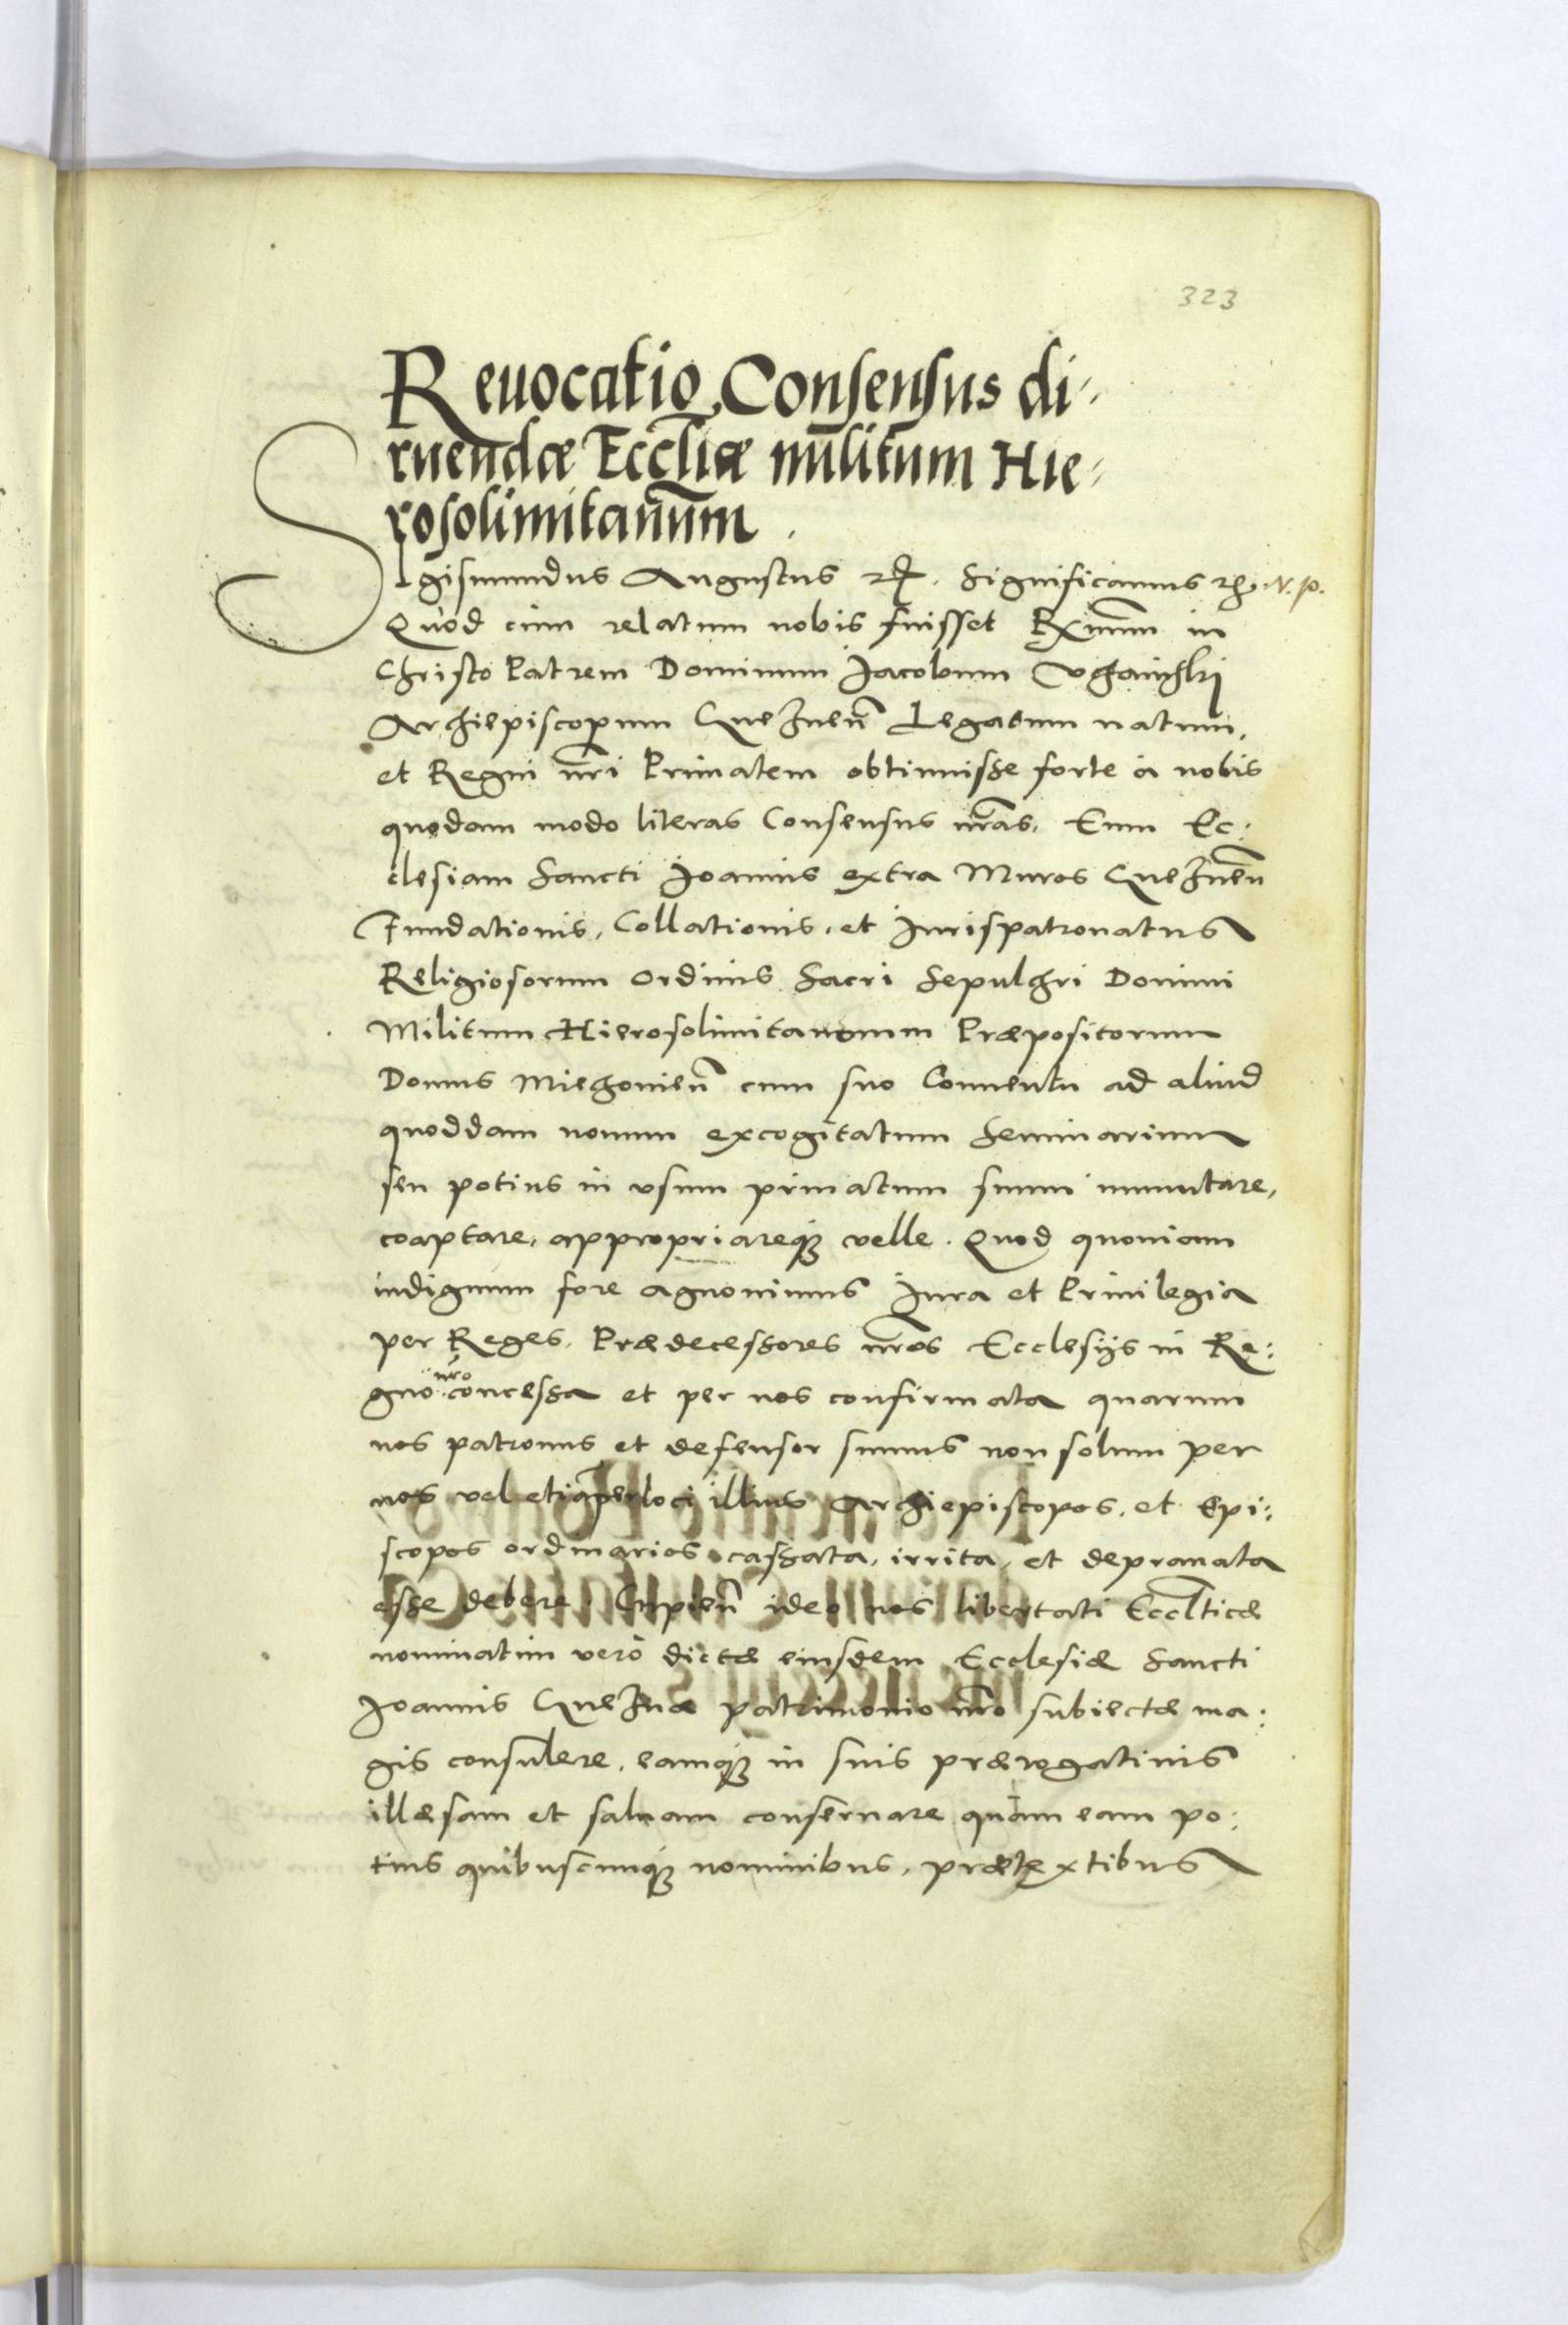 323
Reuocatio Consensus di-
ruendæ Eccl̃iæ militum Hie-
rosolimitanum.
SIgismundus Augustus Significamus
Quod cùm relatum nobis fuisset Rx̃mum in
Christo Patrem Dominum Jacobum Vchański
Archiepiscopum Gneznen̄ Legatum natum,
et Regni nr̃i Primatem obtinuisse forte à nobis
quodam modo literas Consensus nr̃as, Eum Ec:
clesiam Sancti Joannis extra Muros Gneznen̄
Fundationis, Collationis, et Jurispatronatus
Religiosorum Ordinis Sacri Sepulchri Domini
Militum Hierosolimitanorum Præpositorum
Domus Miechouien̄ cum suo Conuentu ad aliud
quoddam nouum excogitatum Seminarium
seu potius in vsum priuatum suum immutare,
coaptare, appropriareq; velle. Quod quoniam
indignum fore agnouimus Jura et Priuilegia
per Reges, Prædecessores nr̃os Ecclesijs in Re:
gno nr̃o concessa et per nos confirmata quarum
nos patronus et defensor sumus non solum per
nos vel etiã per loci illius Archiepiscopos, et Epi:
scopos ordinarios cassata, irrita, et deprauata
esse debere. Cupien̄ ideo nos libertati Eccl̃ticæ
nominatim verò dictæ eiusdem Ecclesiæ Sancti
Joannis Gneznæ patrimonio nr̃o subiectæ ma:
gis consulere, eamq; in suis prærogatiuis
illæsam et saluam conseruare quàm eam po:
tius quibuscunq; nominibus, prætextibus